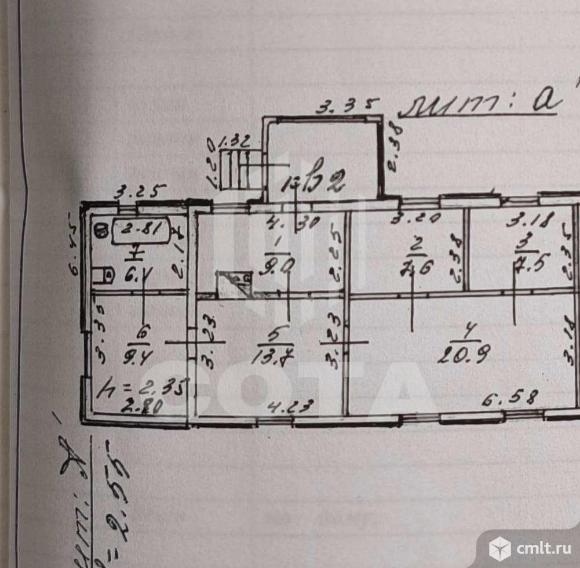 3.35
лит: а
1.32
1.20
2.38
3.25
4.30
3.20
3.18
6.45
2.81
7
6.1
2.17
1
9.0
2.25
2
7.6
2.38
3
7.5
2.35
3.30
6
9.4
3.23
5
13.7
3.23
4
20.9
3.18
h = 2.35
2.80
4.23
6.58
СОТА
= 2.55
cmlt.ru